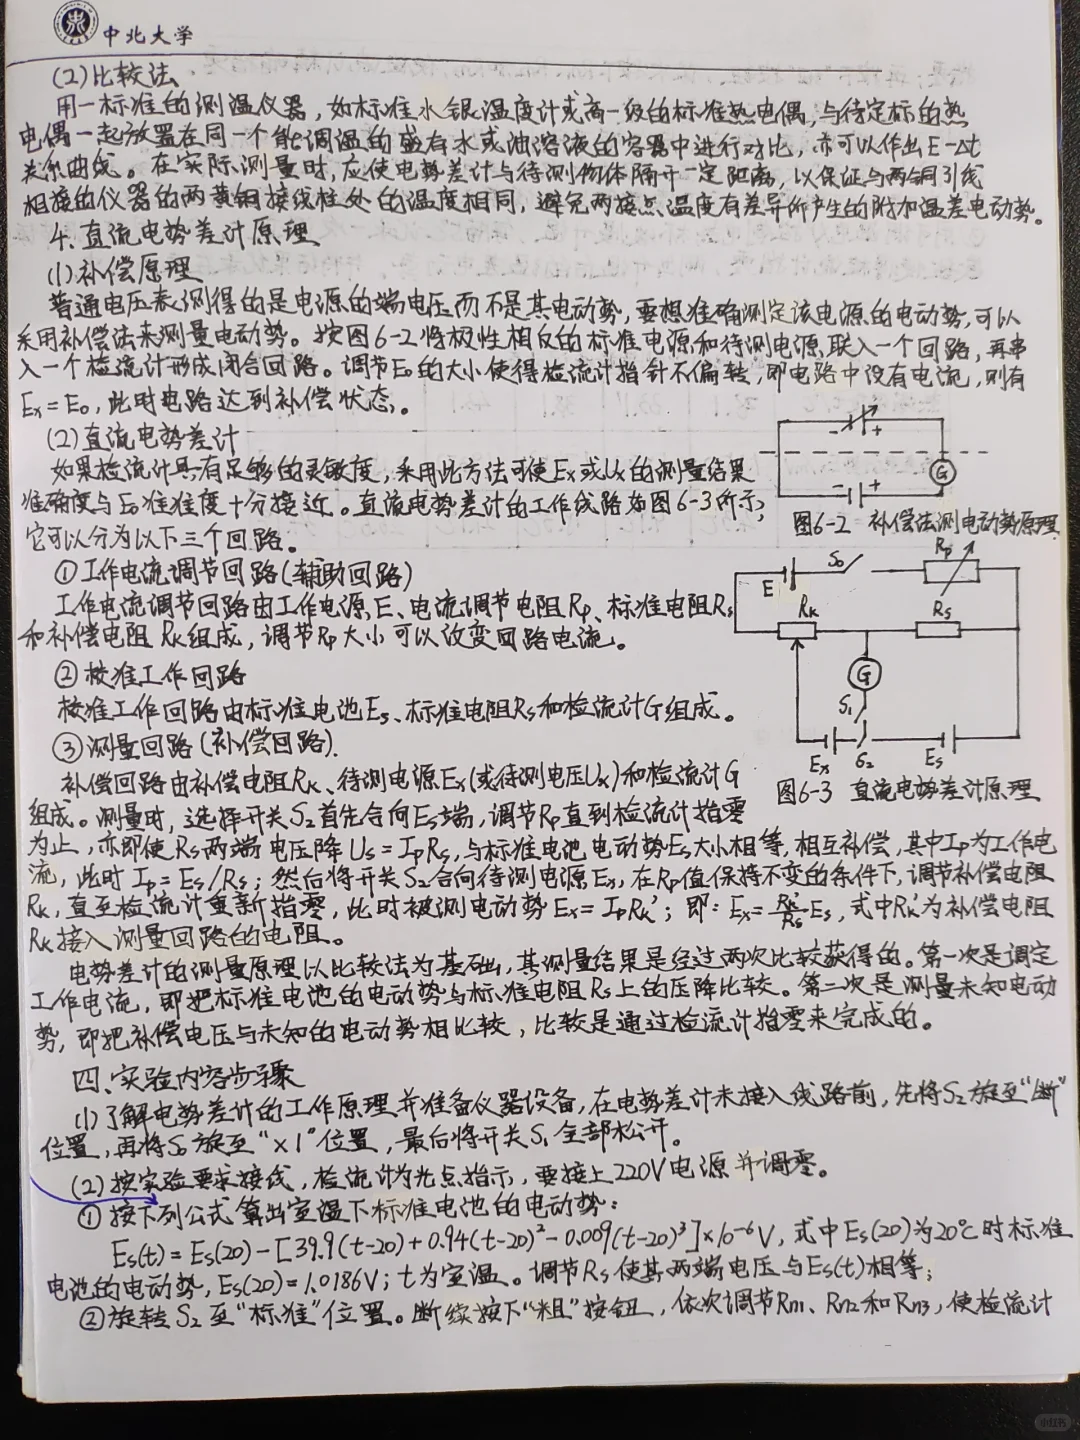 中北大学
(2)比较法
用一标准的测温仪器，如标准水银温度计或高一级的标准热电偶，与待定标的热
电偶一起放置在同一个能调温的盛有水或油溶液的容器中进行对比，亦可以作出E-Δt
关系曲线。在实际测量时，应使电势差计与待测物体隔开一定距离，以保证与两铜引线
相接的仪器的两黄铜接线柱处的温度相同，避免两接点温度有差异所产生的附加温差电动势。
4.直流电势差计原理
(1)补偿原理
普通电压表测得的是电源的端电压而不是其电动势，要想准确测定该电源的电动势，可以
采用补偿法来测量电动势。按图6-2将极性相反的标准电源和待测电源联入一个回路，再串
入一个检流计形成闭合回路。调节E₀的大小使得检流计指针不偏转，即电路中没有电流，则有
Ex=E₀，此时电路达到补偿状态。
(2)直流电势差计
如果检流计具有足够的灵敏度，采用此方法可使Ex或Ux的测量结果
准确度与E₀准准度十分接近。直流电势差计的工作线路如图6-3所示，
它可以分为以下三个回路。
- +
G
- +
图6-2 补偿法测电动势原理
①工作电流调节回路(辅助回路)
工作电流调节回路由工作电源E、电流调节电阻Rp、标准电阻Rs
和补偿电阻RK组成，调节Rp大小可以改变回路电流。
②校准工作回路
校准工作回路由标准电池Es、标准电阻Rs和检流计G组成。
③测量回路(补偿回路).
补偿回路由补偿电阻RK、待测电源Ex(或待测电压Ux)和检流计G
组成。测量时，选择开关S₂首先合向Es端，调节Rp直到检流计指零
E S₀ Rp
RK Rs
G
S₁
Ex S₂ Es
图6-3 直流电势差计原理
为止，亦即使Rs两端电压降Us=IpRs，与标准电池电动势Es大小相等，相互补偿，其中Ip为工作电
流，此时Ip=Es/Rs；然后将开关S₂合向待测电源Ex，在Rp值保持不变的条件下，调节补偿电阻
RK，直至检流计重新指零，此时被测电动势Ex=IpRK'；即：Ex=RK'/Rs Es，式中RK'为补偿电阻
RK接入测量回路的电阻。
电势差计的测量原理以比较法为基础，其测量结果是经过两次比较获得的。第一次是调定
工作电流，即把标准电池的电动势与标准电阻Rs上的压降比较。第二次是测量未知电动
势，即把补偿电压与未知的电动势相比较，比较是通过检流计指零来完成的。
四、实验内容步骤
(1)了解电势差计的工作原理并准备仪器设备，在电势差计未接入线路前，先将S₂旋至“断”
位置，再将S₀旋至“×1”位置，最后将开关S₁全部松开。
(2)按实验要求接线，检流计为光点指示，要接上220V电源并调零。
①按下列公式算出室温下标准电池的电动势：
Es(t)=Es(20)-[39.9(t-20)+0.94(t-20)²-0.009(t-20)³]×10⁻⁶V，式中Es(20)为20℃时标准
电池的电动势，Es(20)=1.0186V；t为室温。调节Rs使其两端电压与Es(t)相等；
②旋转S₂至“标准”位置。断续按下“粗”按钮，依次调节Rn1、Rn2和Rn3，使检流计
小红书